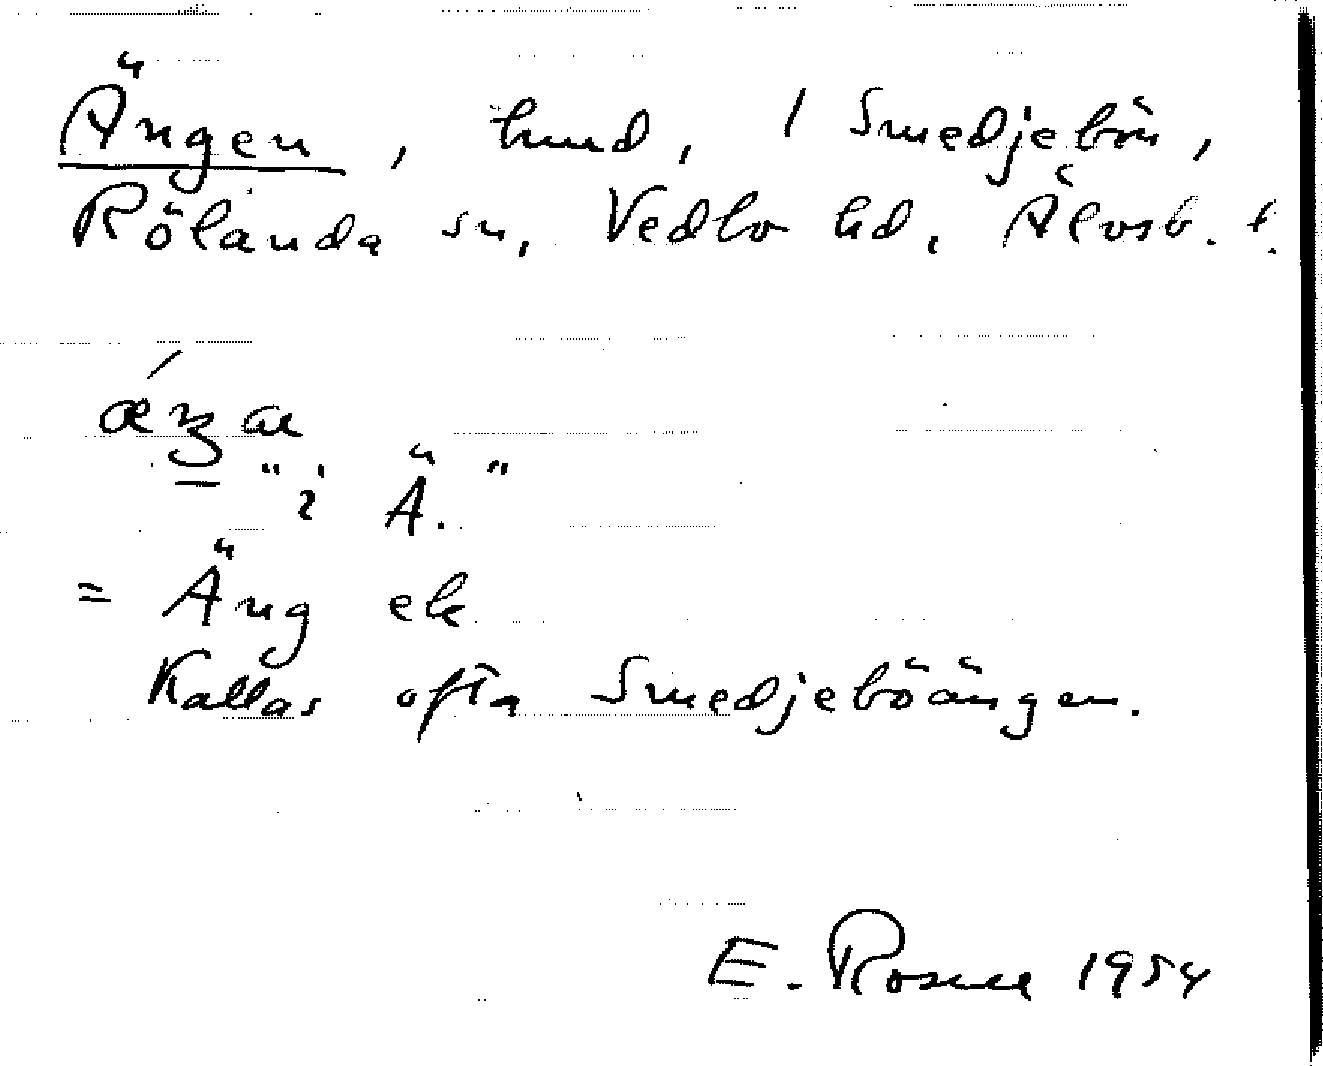 Ängen, hmd, 1 Smedjebön,
Rölanda sn, Vedbo hd, Älvsb. l.
"i Ä."
= Äng ek
Kallas ofta Smedjeböängen.
E. Rosell 1954